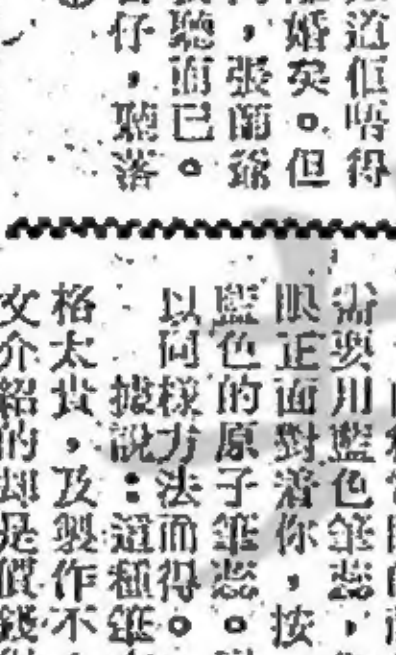 道佢唔得
婚矣。但
，張
聽，面已。
仔，聽落
需要用藍色筆蕊，
眼正面對着你，按
藍色的原子筆蕊。
以同樣方法而得。
據說：這種筆
格太貴，及製作不
文介紹的却是價錢